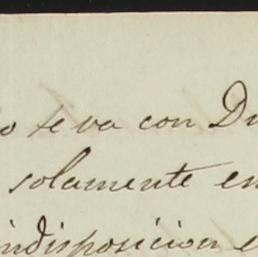 o se va con Du
solamente en
indisposicion e